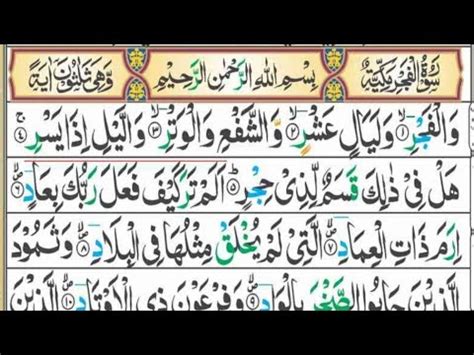 سُوْرَةُ الْفَجْرِ مَكِّيَّةٌ بِسْمِ اللهِ الرَّحْمٰنِ الرَّحِيْمِ وَّهِيَ ثَلٰثُوْنَ اٰيَةً
وَالْفَجْرِ ۙ﴿۱﴾ وَلَيَالٍ عَشْرٍ ۙ﴿۲﴾ وَّالشَّفْعِ وَالْوَتْرِ ۙ﴿۳﴾ وَالَّيْلِ اِذَا يَسْرِ ۚ﴿۴﴾
هَلْ فِيْ ذٰلِكَ قَسَمٌ لِّذِيْ حِجْرٍ ؕ﴿۵﴾ اَلَمْ تَرَ كَيْفَ فَعَلَ رَبُّكَ بِعَادٍ ۪ۙ﴿۶﴾
اِرَمَ ذَاتِ الْعِمَادِ ۪ۙ﴿۷﴾ الَّتِيْ لَمْ يُخْلَقْ مِثْلُهَا فِي الْبِلَادِ ۪ۙ﴿۸﴾ وَثَمُوْدَ
الَّذِيْنَ جَابُوا الصَّخْرَ بِالْوَادِ ۪ۙ﴿۹﴾ وَفِرْعَوْنَ ذِي الْاَوْتَادِ ۪ۙ﴿۱۰﴾ الَّذِيْنَ